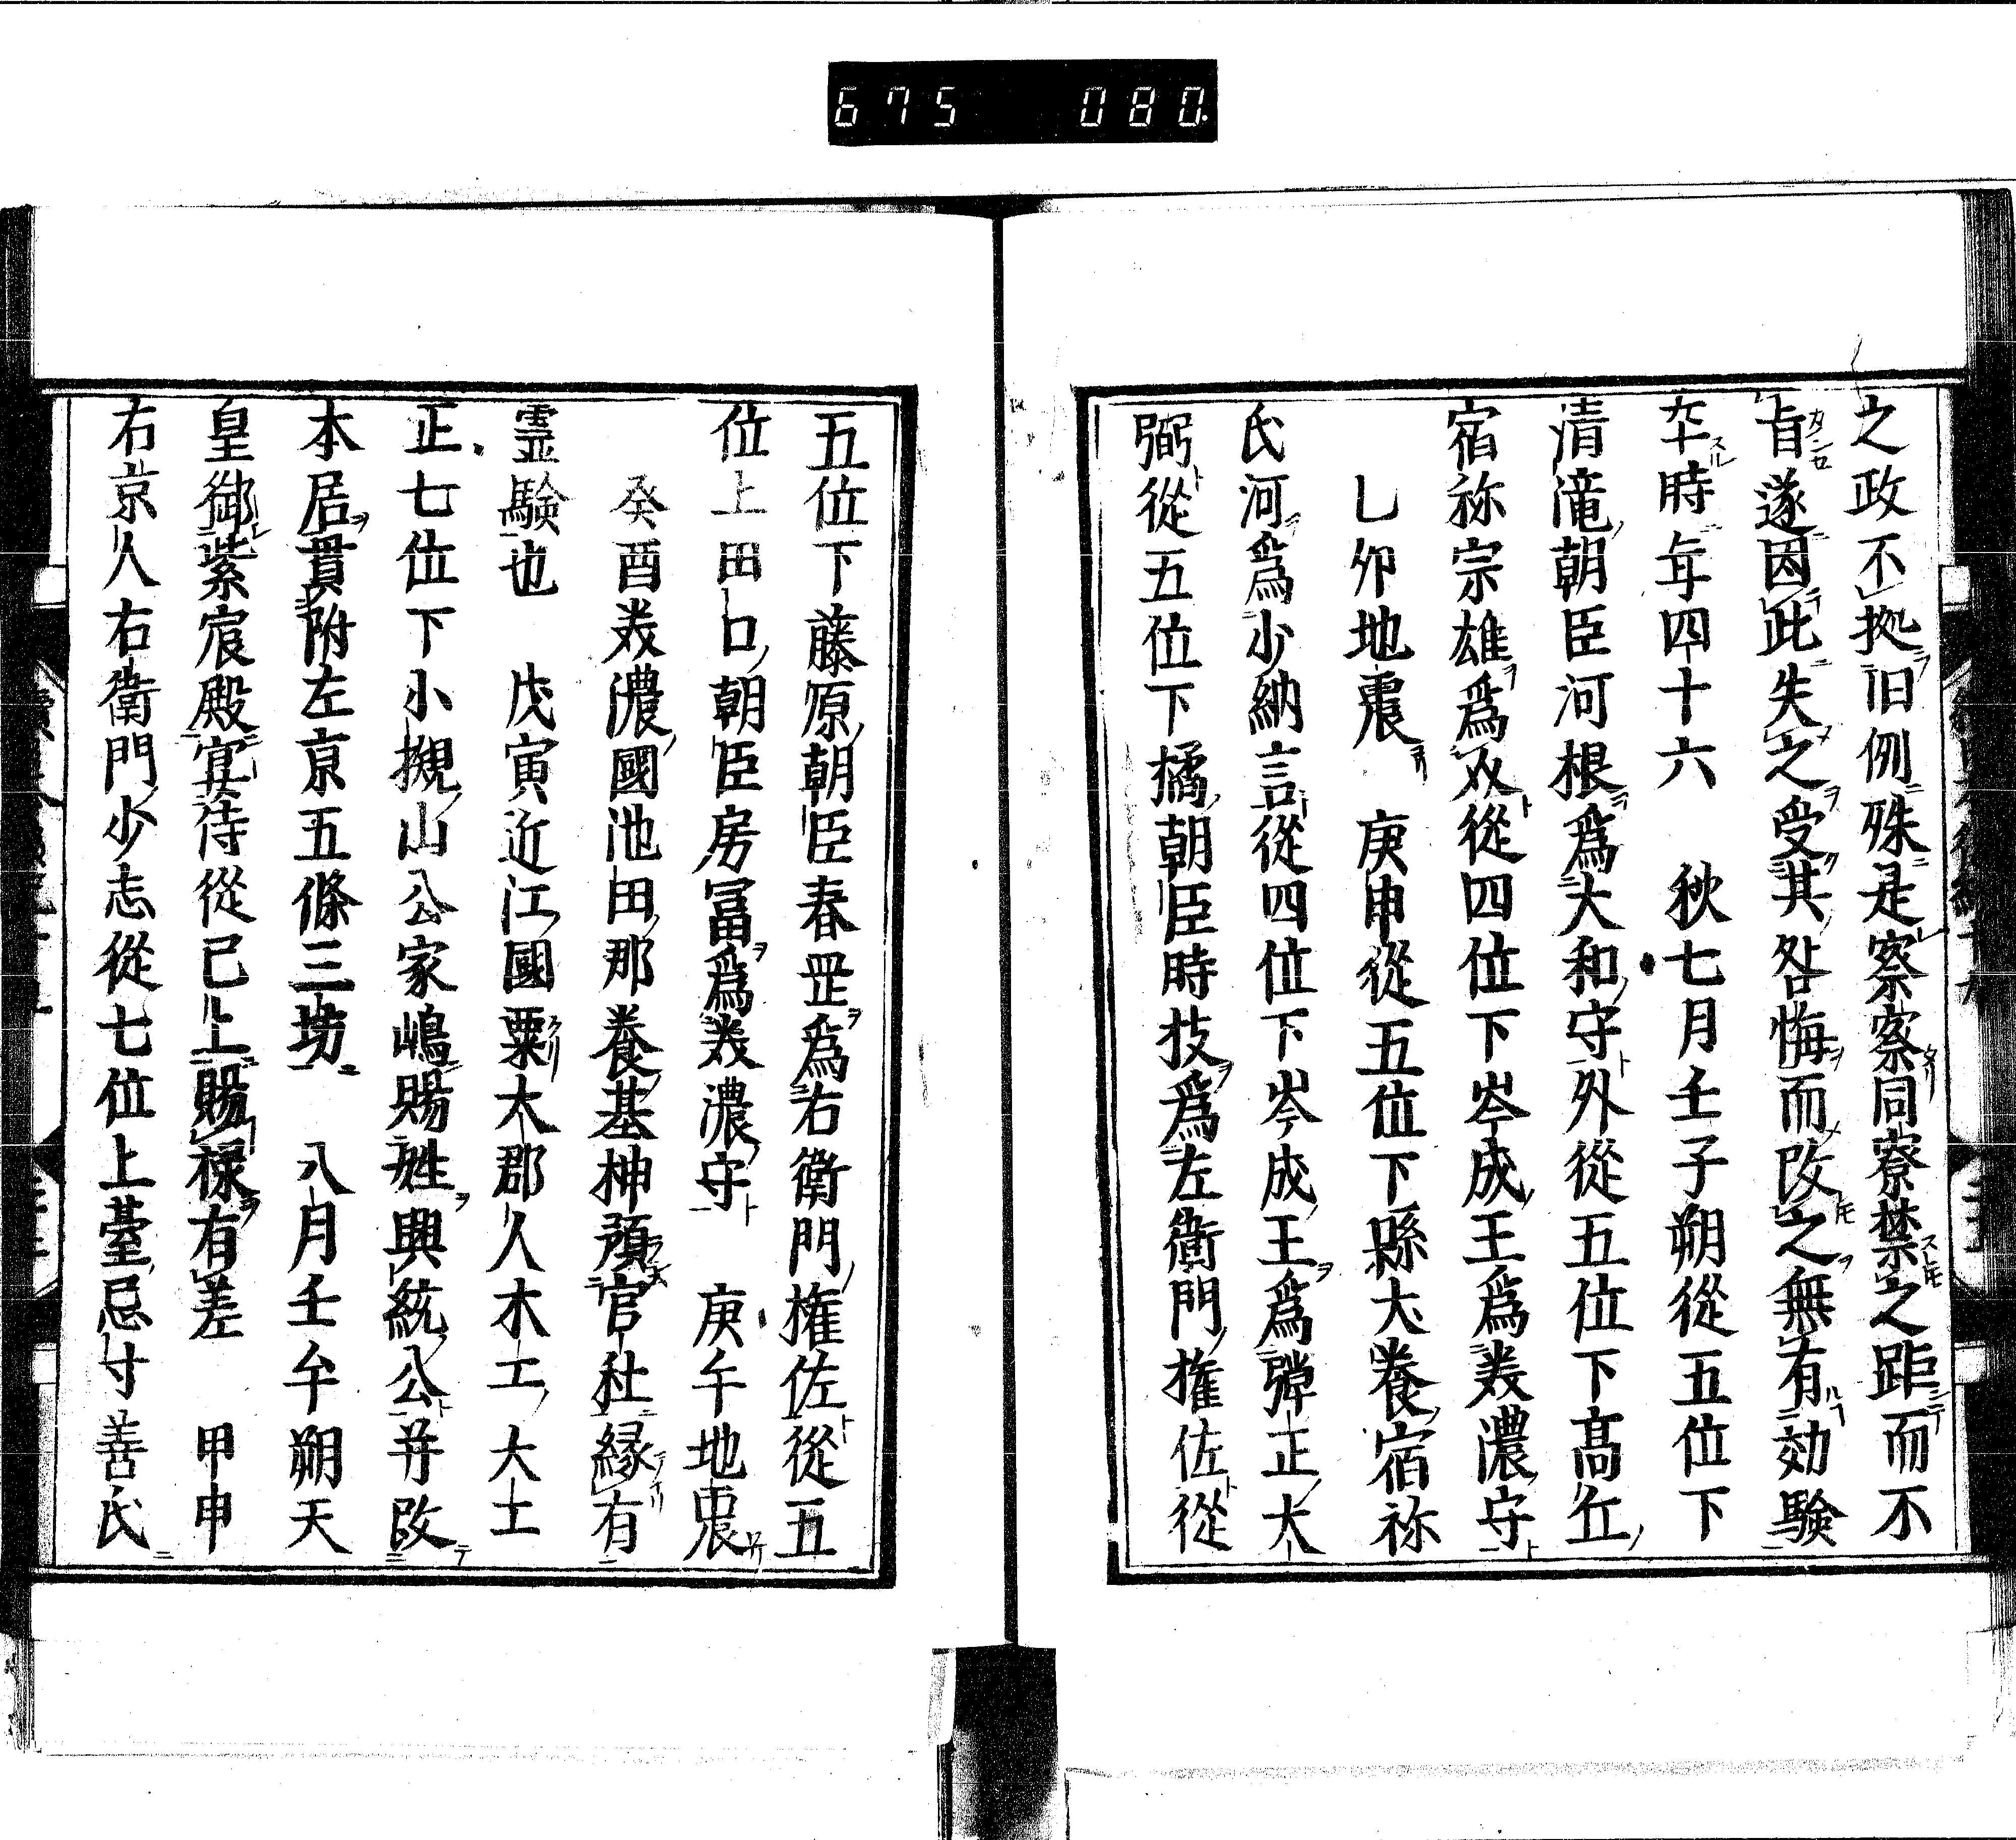 675 080
之政不拠旧例殊是察察同寮禁之距而不
旨遂因此失之受其咎悔而改之無有効驗
卒時年四十六　秋七月壬子朔從五位下
清滝朝臣河根為大和守外從五位下高丘
宿祢宗雄為介從四位下岑成王為美濃守
乙卯地震　庚申從五位下縣犬養宿祢
氏河為少納言從四位下岑成王為彈正大
弼從五位下橘朝臣時枝為左衛門權佐從
五位下藤原朝臣春岡為右衛門権佐從五
位上田口朝臣房冨為美濃守　庚午地震
癸酉美濃國池田郡養基神預官社縁有
霊驗也　戊寅近江國粟太郡人木工大工
正七位下小槻山公家嶋賜姓興統公并改
本居貫附左京五條三坊　八月壬午朔天
皇御紫宸殿宴侍從已上賜禄有差　甲申
右京人右衛門少志從七位上臺忌寸善氏